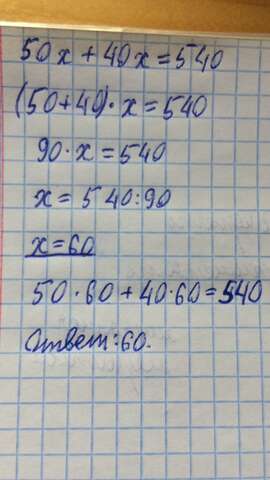 50x+40x=540
(50+40)·x=540
90·x=540
x=540:90
x=60
50·60+40·60=540
Ответ:60.